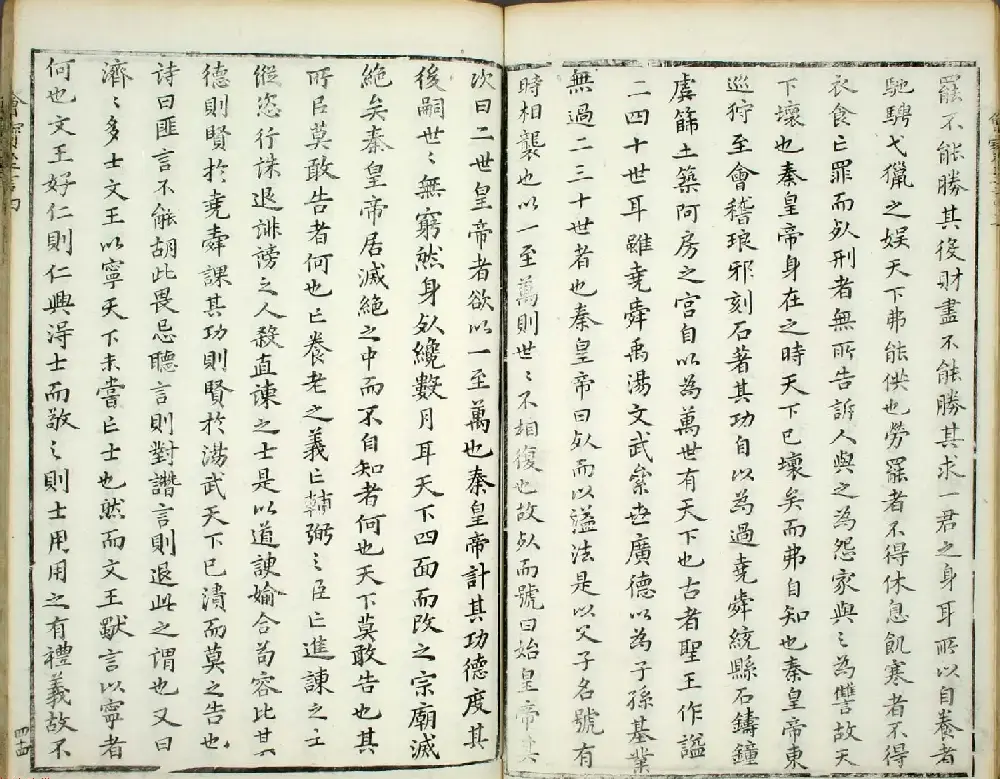 罷不能勝其役財盡不能勝其求一君之身耳所以自養者
馳騁弋獵之娛天下弗能供也勞罷者不得休息飢寒者不得
衣食亡罪而死刑者無所告訴人與之為怨家與之為讐故天
下壞也秦皇帝身在之時天下已壞矣而弗自知也秦皇帝東
巡狩至會稽琅邪刻石著其功自以為過堯舜統縣石鑄鐘
虡篩土築阿房之宮自以為萬世有天下也古者聖王作謚
二四十世耳雖堯舜禹湯文武絫世廣德以為子孫基業
無過二三十世者也秦皇帝曰死而以謚法是以父子名號有
時相襲也以一至萬則世〻不相復也故死而號曰始皇帝其
次曰二世皇帝者欲以一至萬也秦皇帝計其功德度其
後嗣世〻無窮然身死纔數月耳天下四面而攻之宗廟滅
絕矣秦皇帝居滅絕之中而不自知者何也天下莫敢告也其
所以莫敢告者何也亡養老之義亡輔弼之臣亡進諫之士
縱恣行誅退誹謗之人殺直諫之士是以道諛媮合苟容比其
德則賢於堯舜課其功則賢於湯武天下已潰而莫之告也
詩曰匪言不能胡此畏忌聽言則對譖言則退此之謂也又曰
濟〻多士文王以寧天下未嘗亡士也然而文王獸言以寧者
何也文王好仁則仁興得士而敬之則士用用之有禮義故不